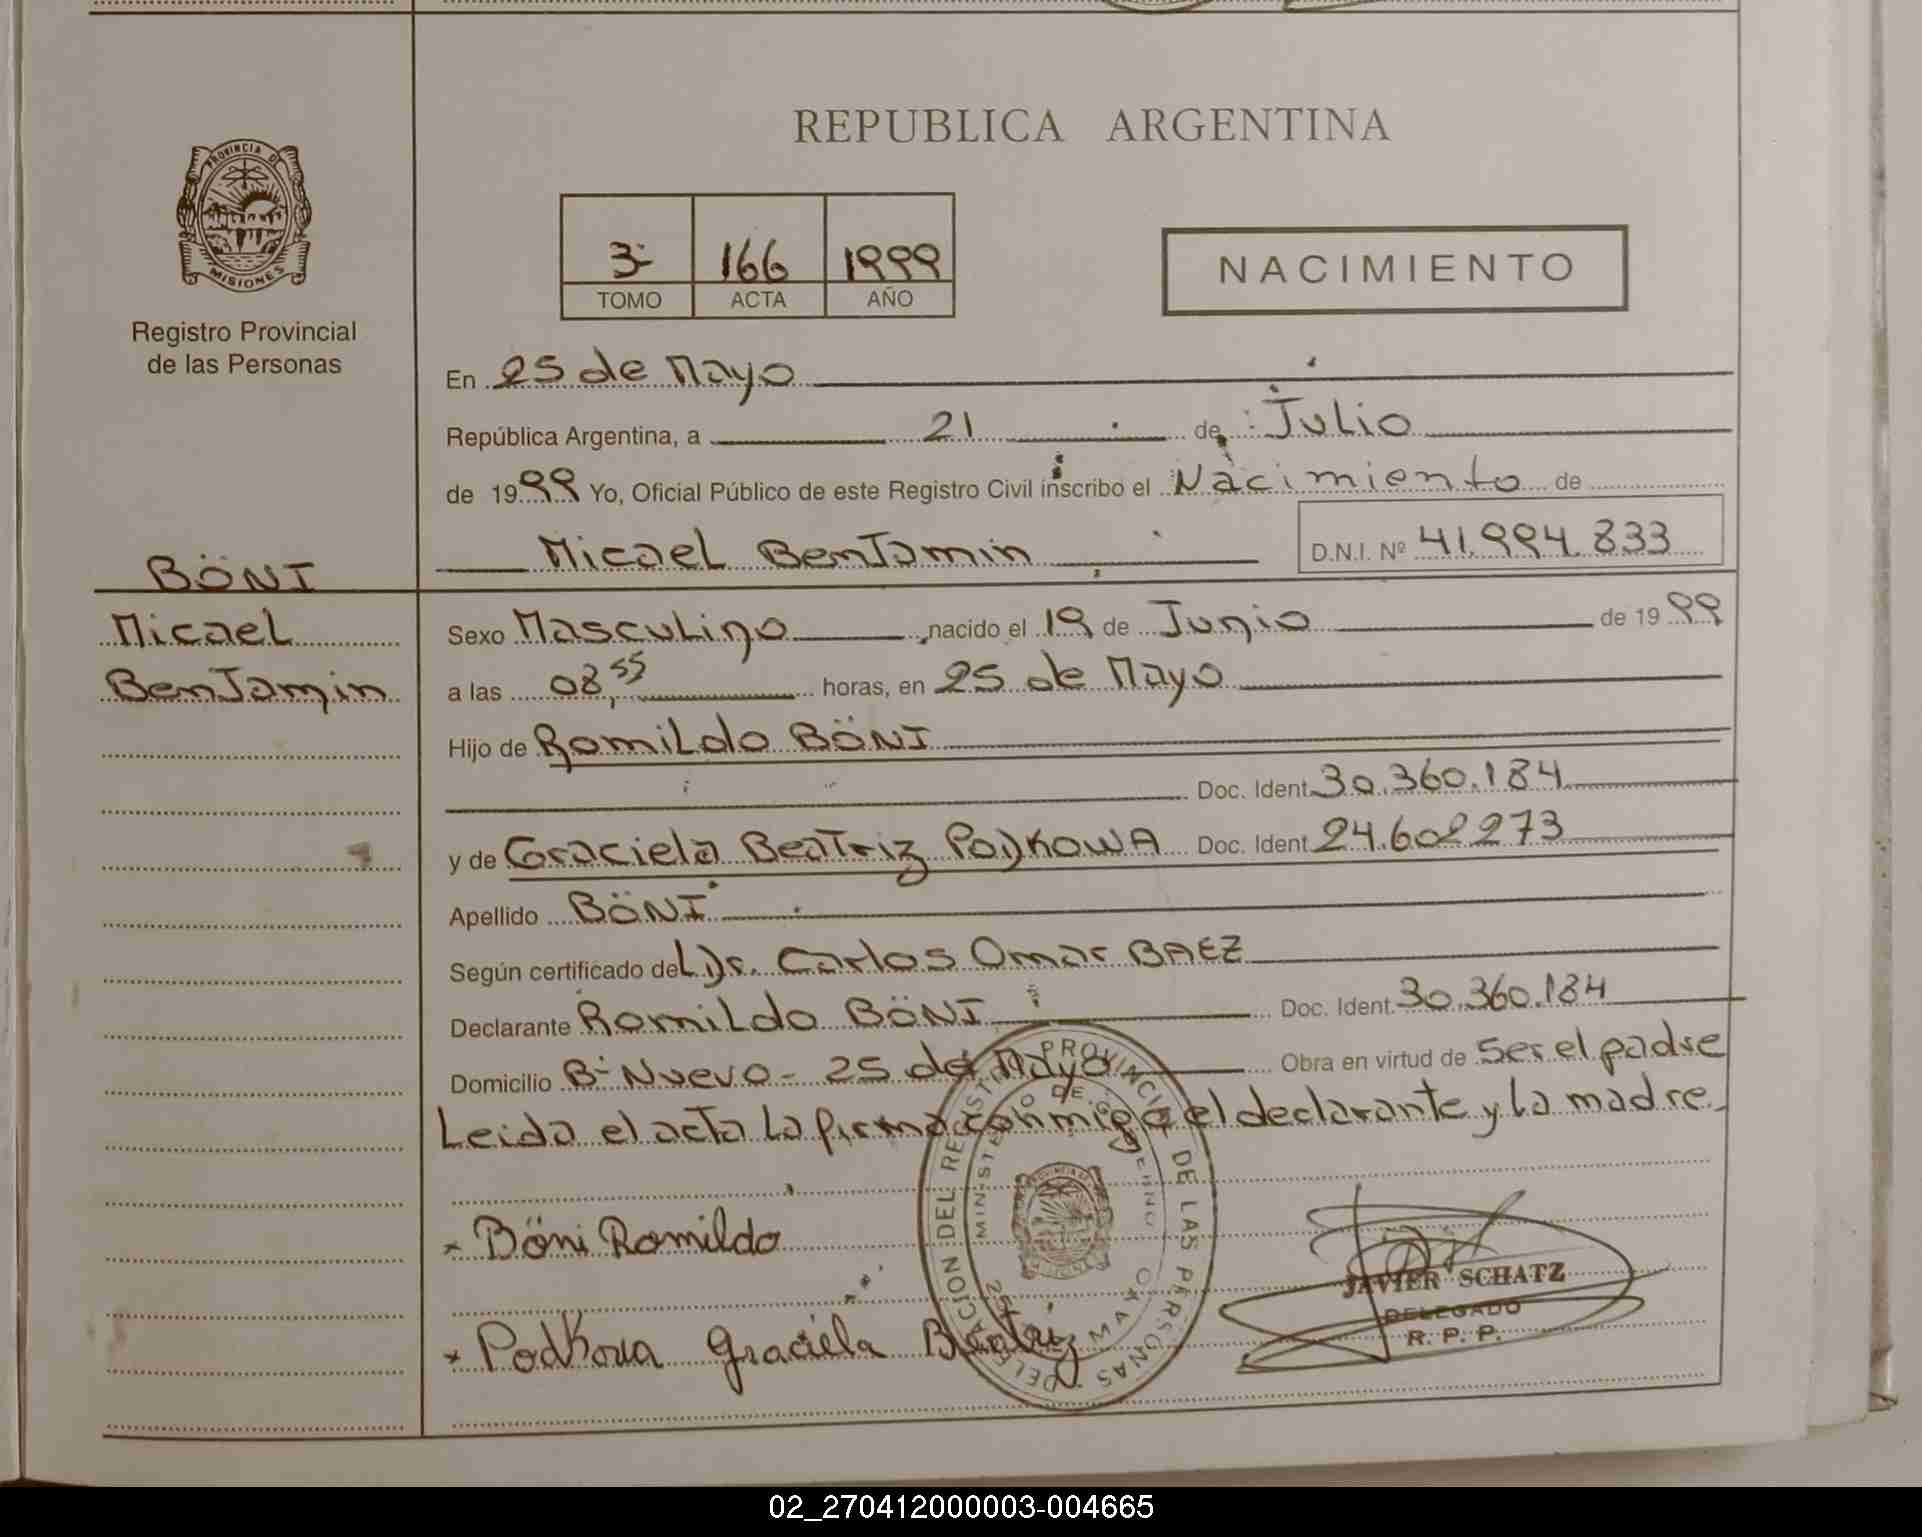 REPUBLICA ARGENTINA
PROVINCIA DE
MISIONES
Registro Provincial
de las Personas
3º 166 1999
TOMO ACTA AÑO
NACIMIENTO
En 25 de Mayo
República Argentina, a 21 de Julio
de 1999 Yo, Oficial Público de este Registro Civil inscribo el Nacimiento de
Micael BenJamin D.N.I. Nº 41.994.833
BÖNI
Micael
BenJamin
Sexo Masculino nacido el 19 de Junio de 1999
a las 08,55 horas, en 25 de Mayo
Hijo de Romildo BÖNI
Doc. Ident. 30.360.184
y de Graciela Beatriz PoDKOWA Doc. Ident. 24.602.273
Apellido BÖNI
Según certificado del Dr. Carlos Omar BAEZ
Declarante Romildo BÖNI Doc. Ident. 30.360.184
Domicilio Bº Nuevo - 25 de Mayo Obra en virtud de Ser el padre
Leida el acta la firma conmigo el declarante y la madre.
Böni Romildo
Podkowa Graciela Beatriz
DELEGACION DEL REGISTRO PROVINCIAL DE LAS PERSONAS
MINISTERIO DE GOBIERNO
25 DE MAYO
JAVIER SCHATZ
DELEGADO
R. P. P.
02_270412000003-004665